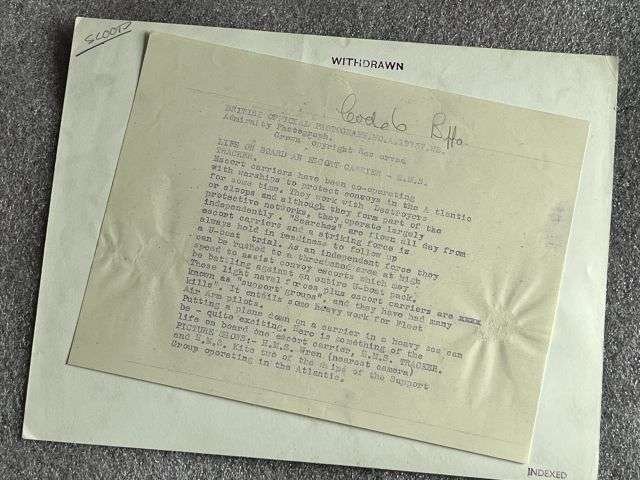 SCOOP
WITHDRAWN
BRITISH OFFICIAL PHOTOGRAPH.NO.
Admiralty Photograph.
Crown opyright Res erved
LIFE ON BOARD AN ESCORT CARRIER - H.M.S.
TRACKER.
Escort carriers have been co-operating
with warships to protect convoys in the A tlantic
for some time. They work with Destroyers
or sloops and although they form part of the
protective networks, they operate largely
independently. "Searches" are flown all day from
escort carriers and a striking force is
always held in readiness to follow up
a U-boat trial. As an independent force they
can be rushed to a threatened area at high
speed to assist convoy escorts which may
be battling against an entire U-boat pack.
These light naval forces plus escort carriers are xxxx
known as "support groups". and they have had many
kills". It entails some heavy work for Fleet
Air Arm pilots.
Putting a plane down on a carrier in a heavy sea can
be - quite exciting. Here is something of the
life on board one escort carrier, H.M.S. TRACKER.
PICTURE SHOWS:- H.M.S. Wren (nearest camera)
and H.M.S. Kite two of the ships of the Support
Group operating in the Atlantic.
INDEXED